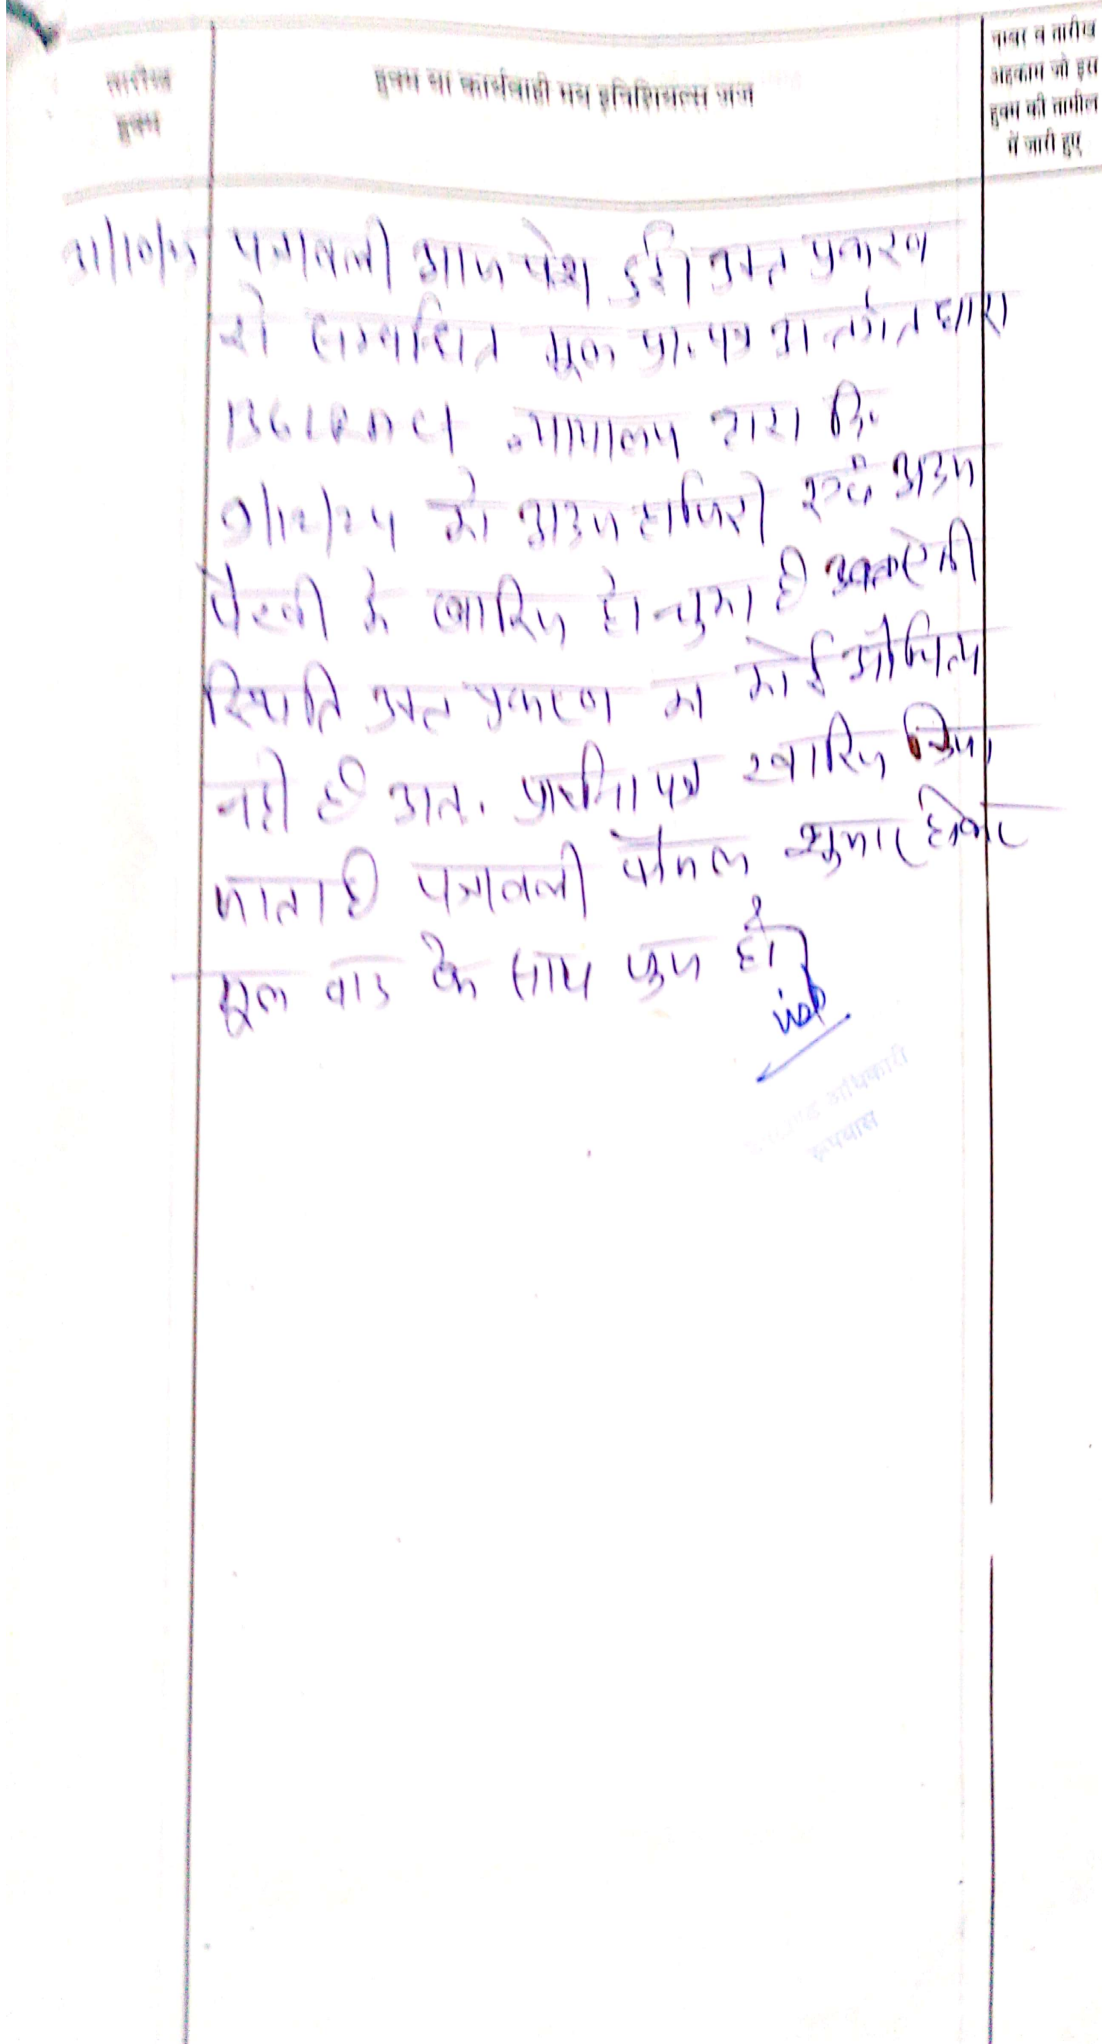 तारीख
हुक्म
हुक्म या कार्यवाही मय इनिशियल्स जज
नम्बर व तारीख
अहकाम जो इस
हुक्म की तामील
में जारी हुए
पत्रावली आज पेश हुई। उक्त प्रकरण
से सम्बन्धित मूल प्रा. पत्र अन्तर्गत धारा
136 LR Act न्यायालय द्वारा दि.
9/12/24 को अदम हाजिरी अदम
पैरवी में खारिज हो चुका है ऐसी
स्थिति उक्त प्रकरण का कोई औचित्य
नही है अतः प्रार्थना पत्र खारिज किया
जाता है पत्रावली फैसल शुमार होकर
मूल वाद के साथ हो।
अधिकारी
रूपवास